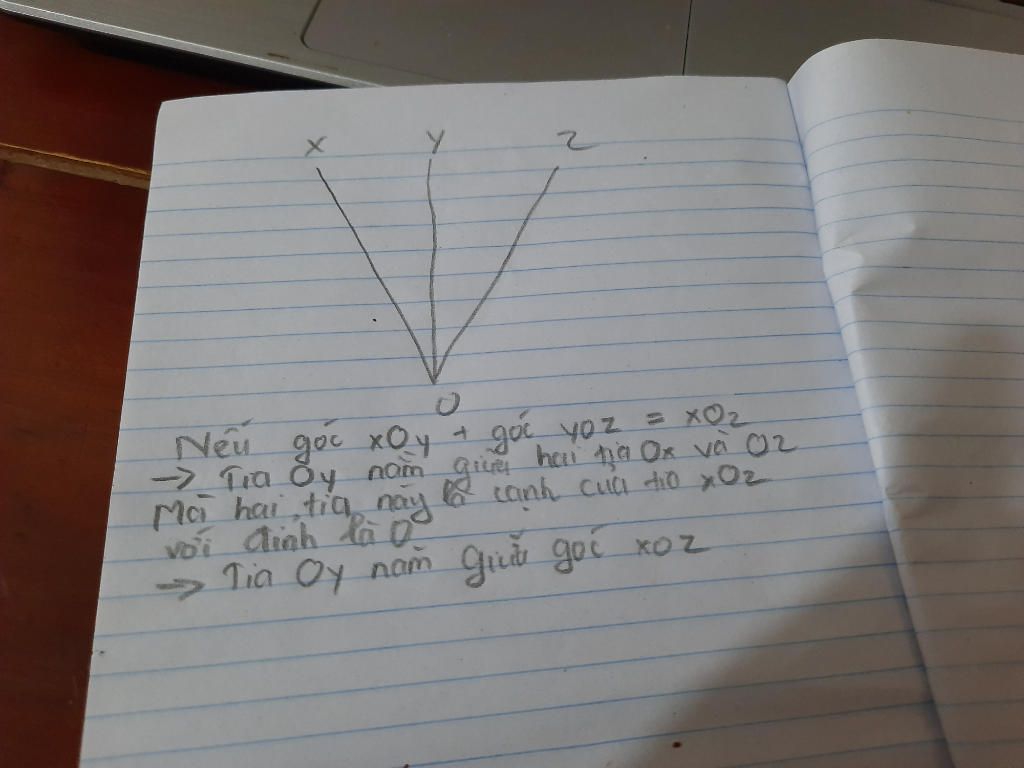 x y z
O
Nếu góc xOy + góc yOz = xOz
→ Tia Oy nằm giữa hai tia Ox và Oz
Mà hai tia này là cạnh của tia xOz
với đỉnh là O
→ Tia Oy nằm giữa góc xOz